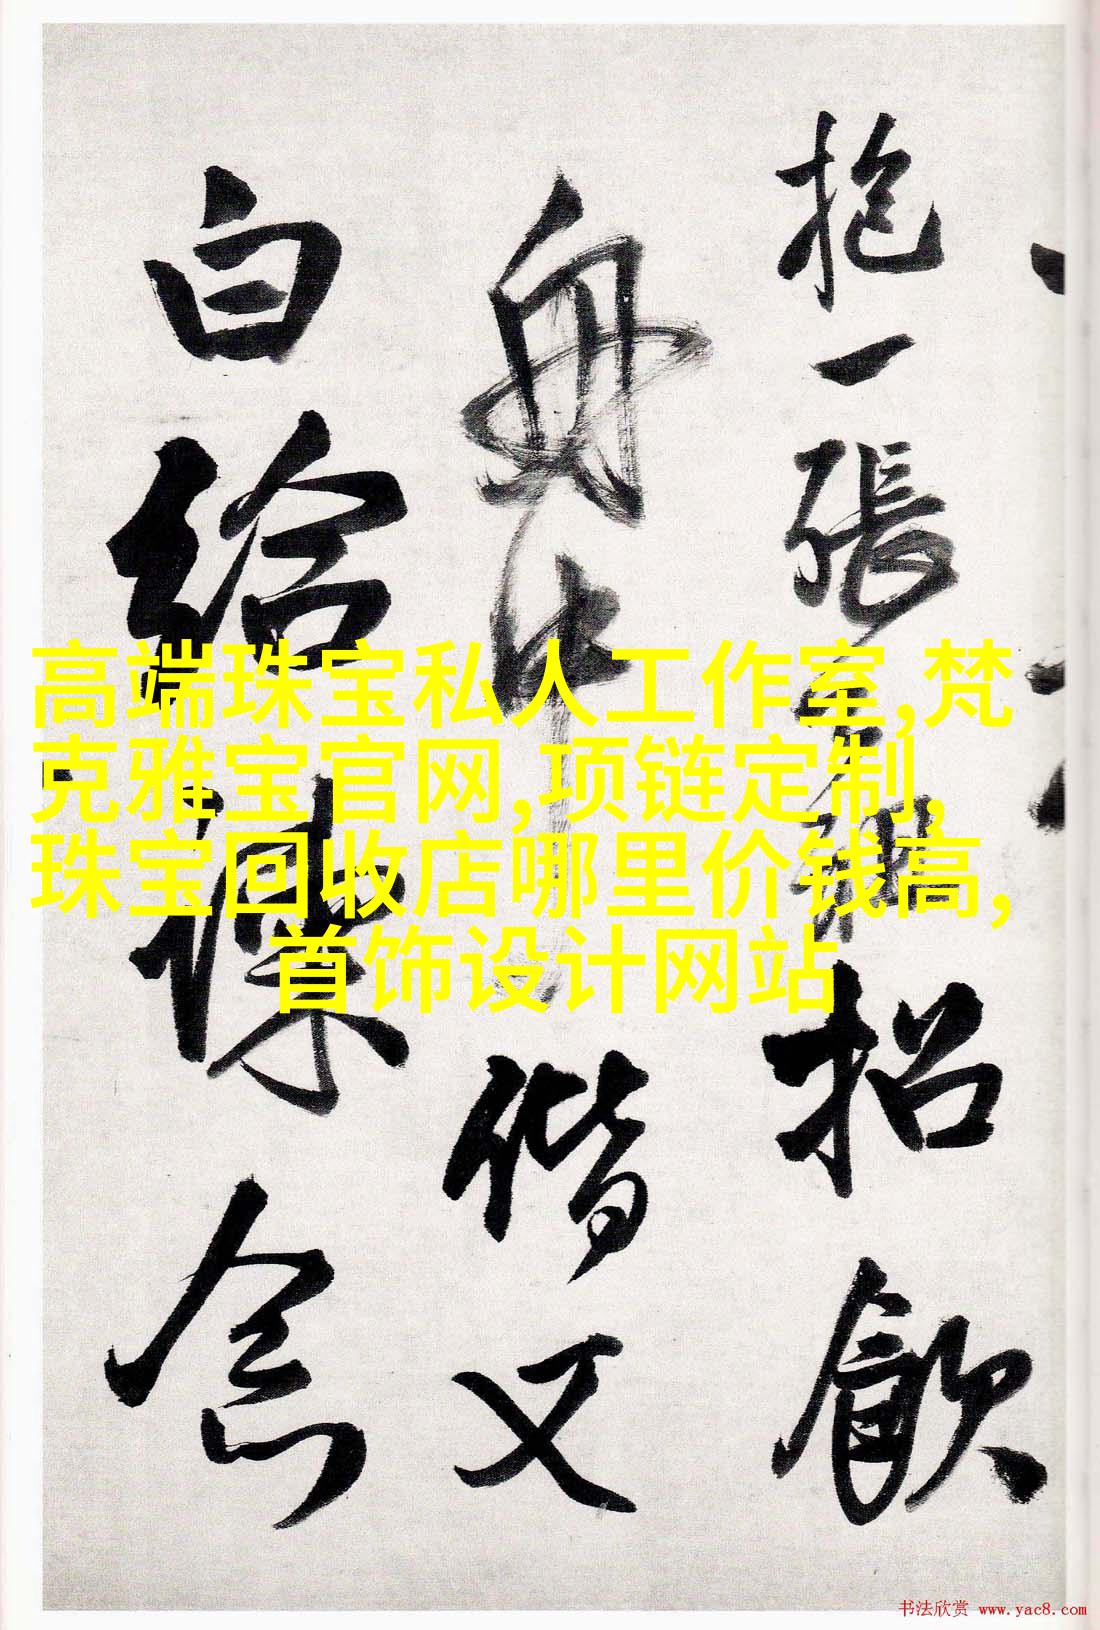 抱一張琴招飲
舟中偕又
白給諫念
高端珠宝私人工作室,梵
克雅宝官网,项链定制,
珠宝回收店哪里价钱高,
首饰设计网站
书法欣赏 www.yac8.com